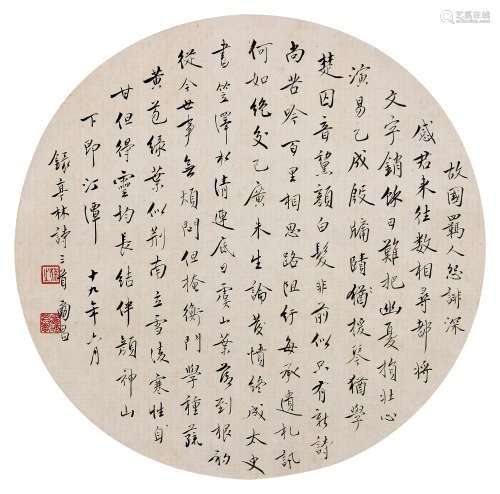 故國羈人怨誹深
感君來往數相尋都將
文字銷餘日難把幽憂損壯心
演易已成殷牖援琴猶學
楚囚音鬒顏白髮非前似只有新詩
尚苦吟百里相思路阻行每承遺札訊
何如絕交已廣朱生論發憤終成太史
書笠澤水清連底日虞山葉落到根初
從今世事無煩問但掩衡門學種蔬
黃苞綠葉似荊南立雪淩寒性自
甘但得靈均長結伴顏神山
下即江潭 十九年六月
錄亭林詩三首